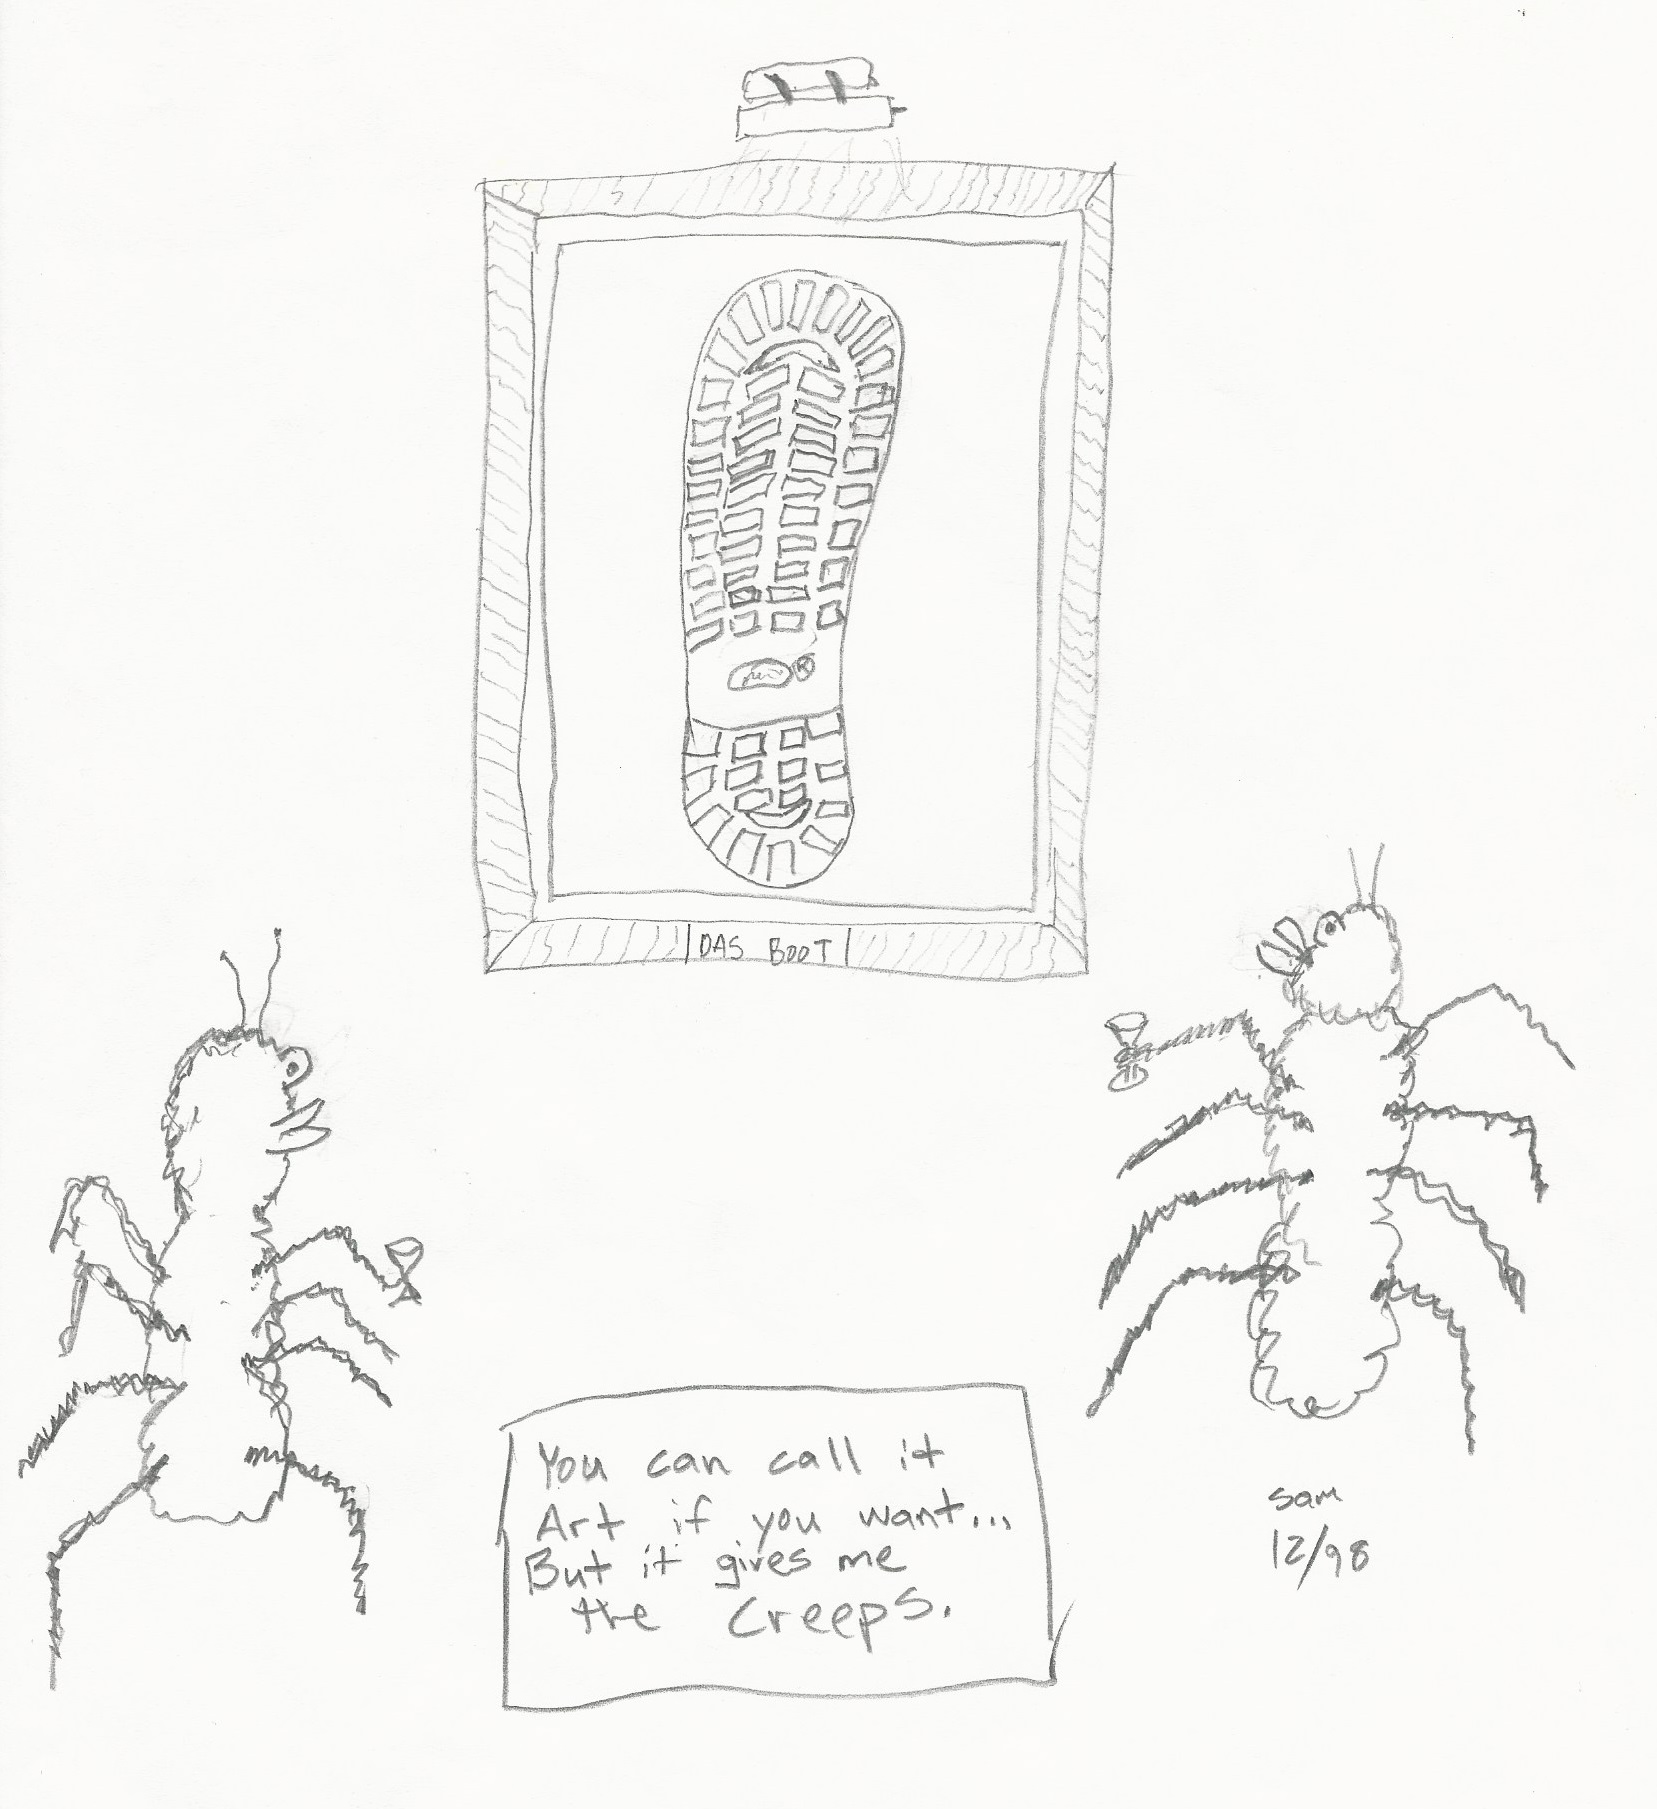 ®
DAS BOOT
You can call it
Art if you want...
But it gives me
the Creeps.
Sam
12/98